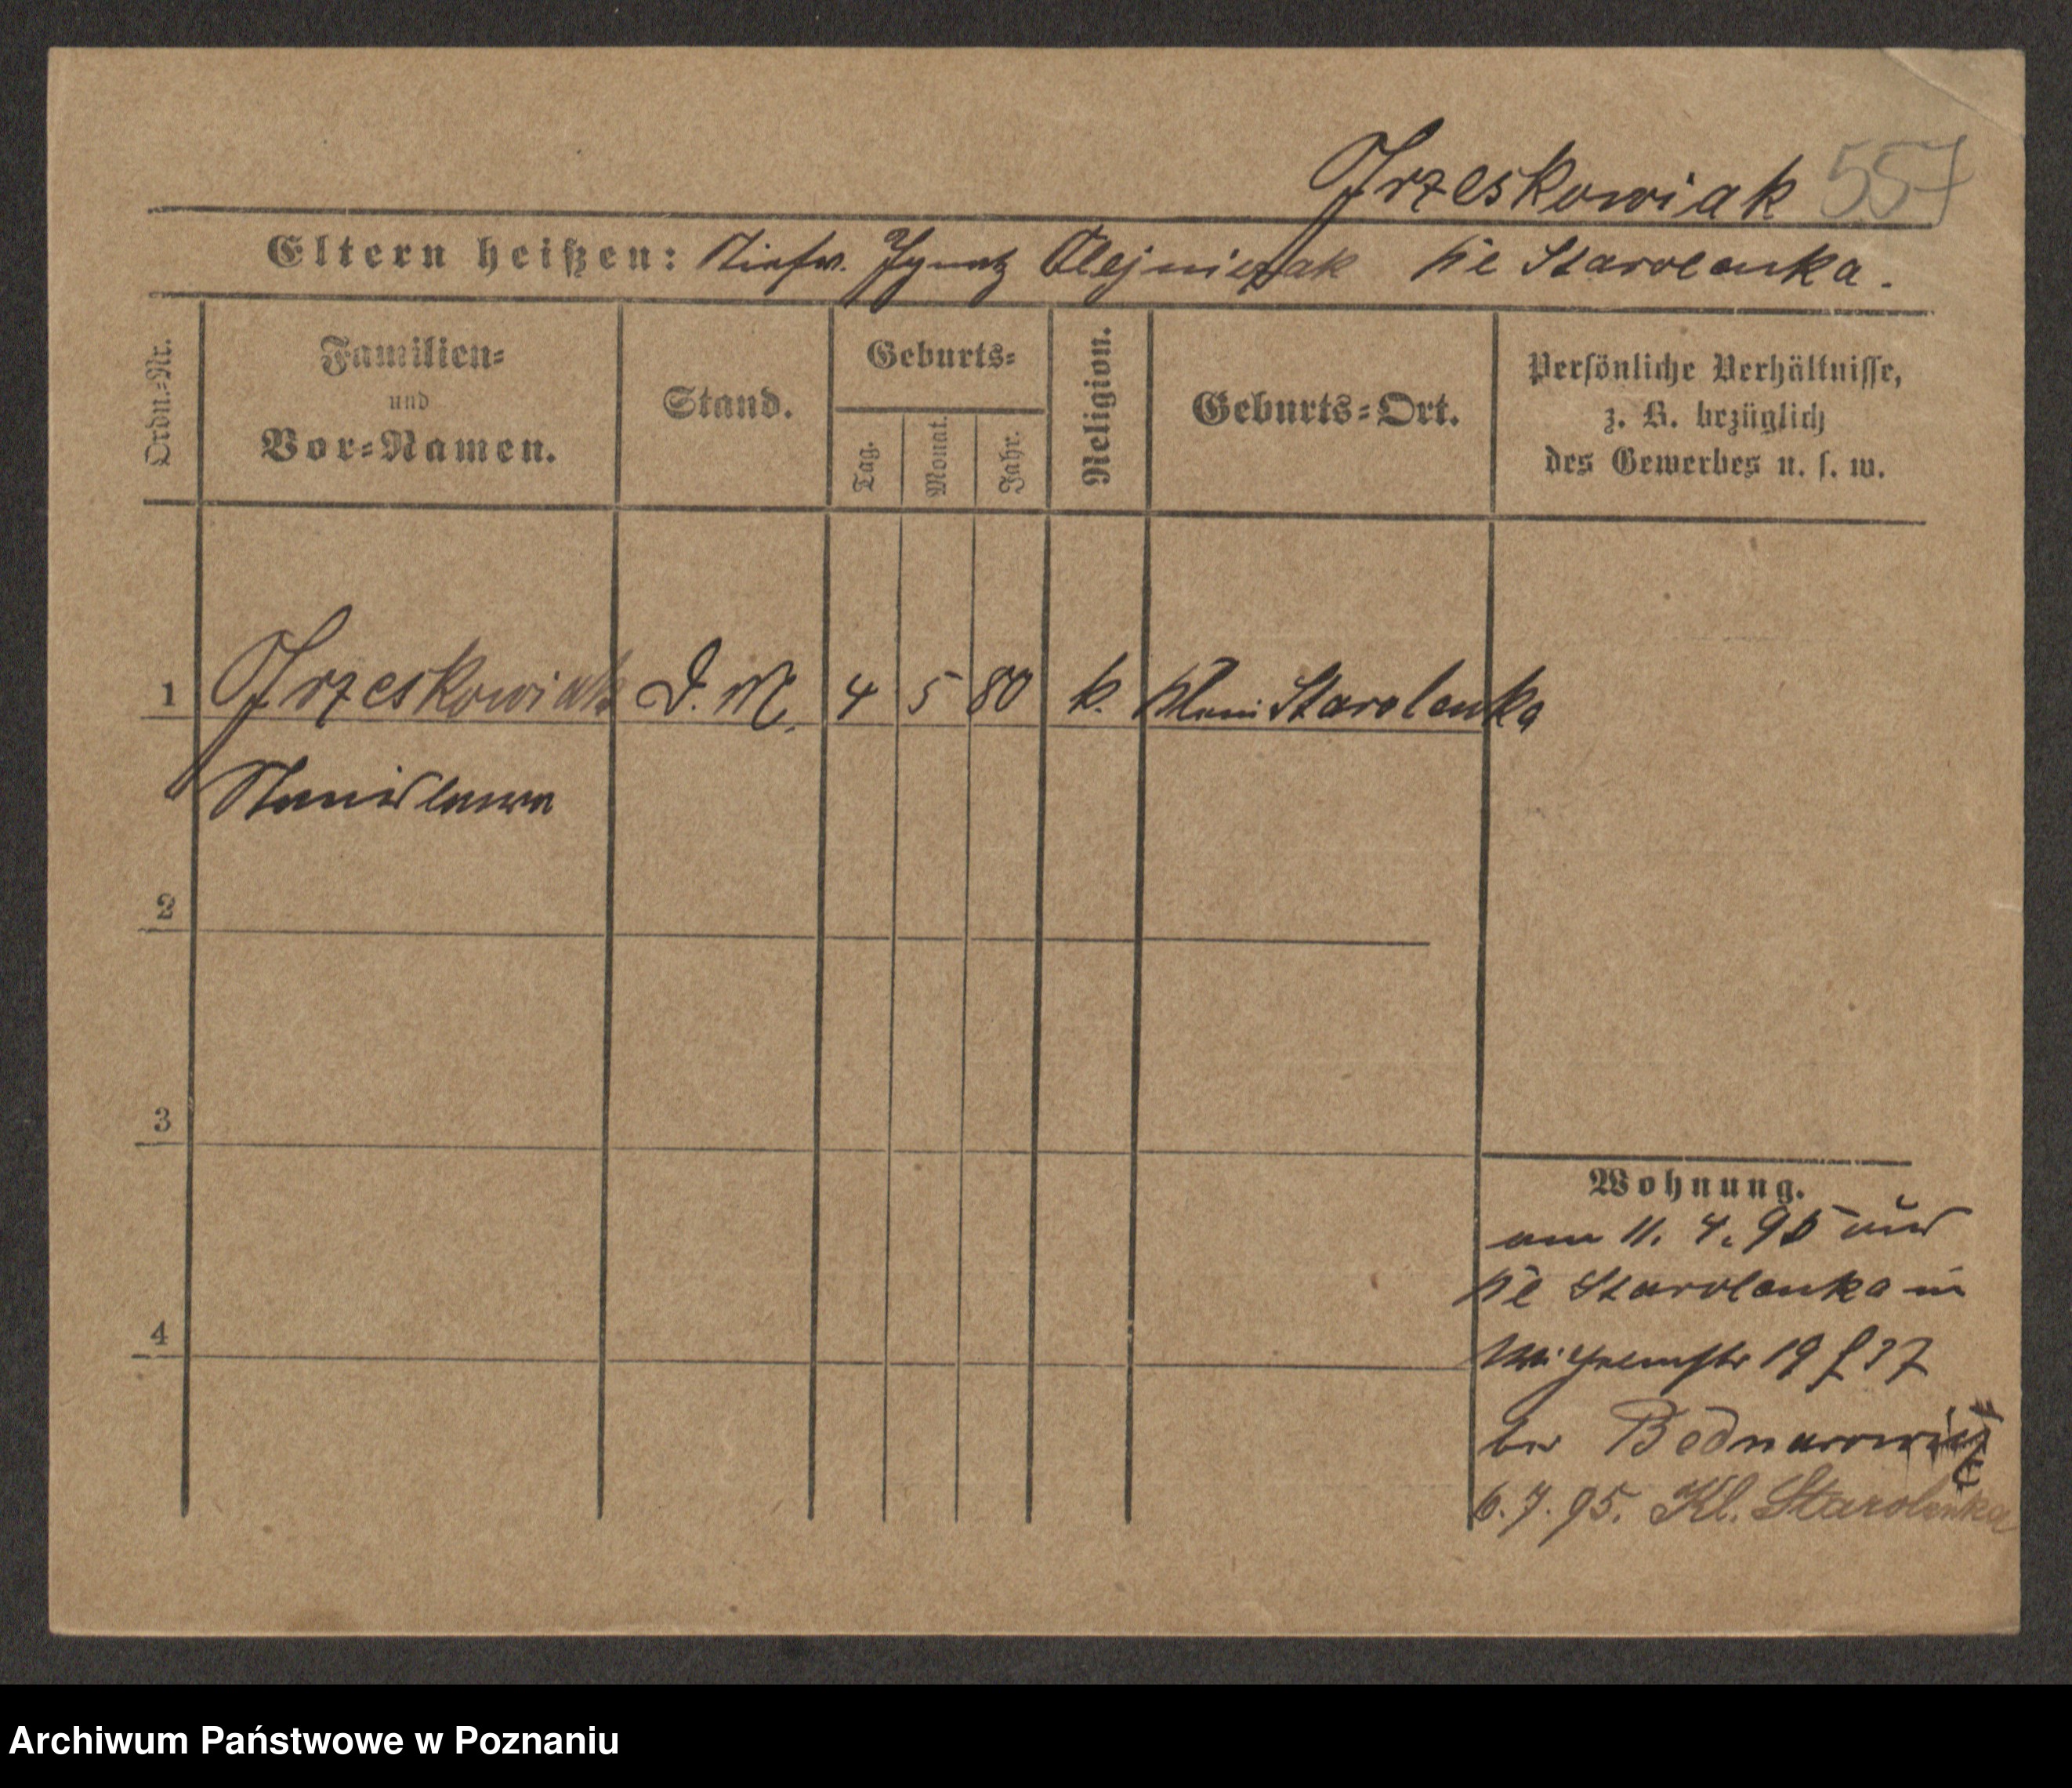 Grzeskowiak 557
Eltern heißen: Stiefv. Ignatz Olejniczak Kl Starolenka.
Ordn.-Nr.
Familien-
und
Vor-Namen.
Stand.
Geburts-
Tag.
Monat.
Jahr.
Religion.
Geburts-Ort.
Persönliche Verhältnisse,
z. B. bezüglich
des Gewerbes u. s. w.
1 Grzeskowiak D. M. 4 5 80 k. Klein Starolenka
Stanislawa
2
3
4
Wohnung.
am 11. 4. 95 aus
Kl Starolenka in
19 37
bei Bednarowicz
6.7.95. Kl. Starolenka
Archiwum Państwowe w Poznaniu